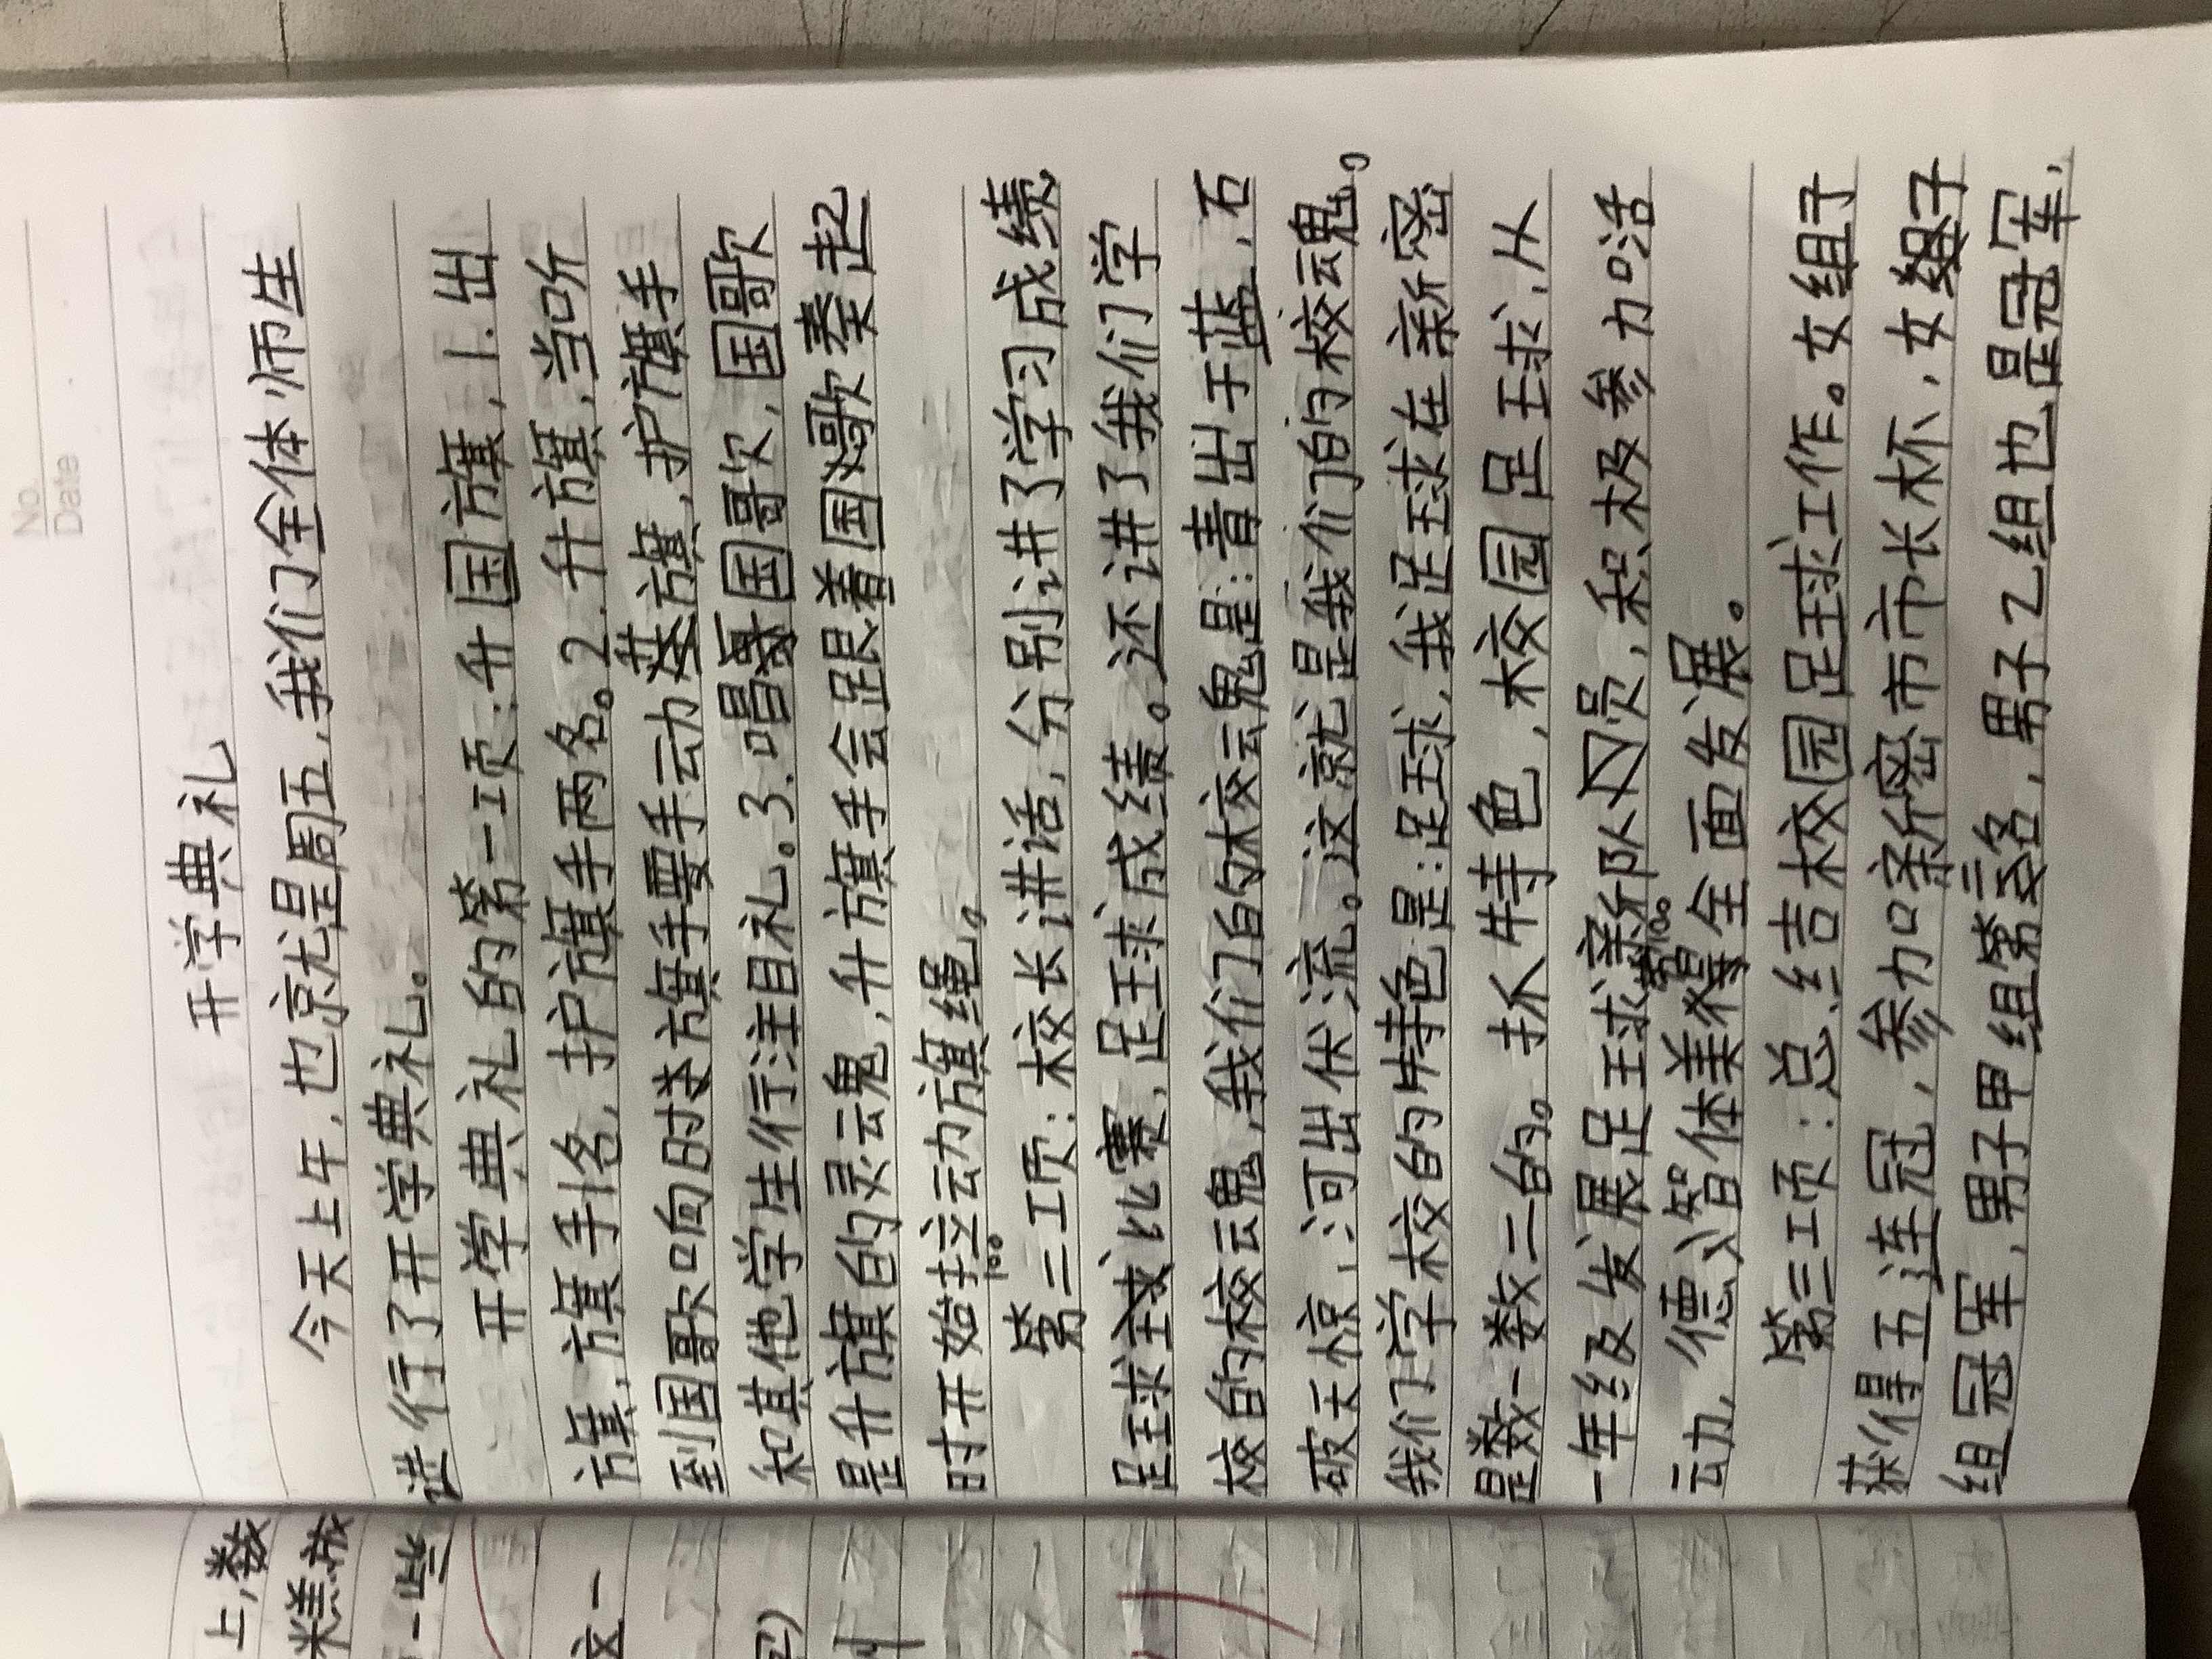 No.
Date
开学典礼
今天上午,也就是周五,我们全体师生
进行了开学典礼。
开学典礼的第一项:升国旗,1.出
旗,旗手1名,护旗手两名。2.升旗,当听
到国歌响时旗手要手动旗,护旗手
和其他学生行注目礼。3.唱国歌,国歌
是升旗的灵魂,升旗手会跟着国歌奏起
时开始拉动旗绳。
第二项:校长讲话,分别讲了学习成绩,
足球比赛,足球成绩。还讲了我们学
校的校魂,我们的校魂是:青出于蓝,石
破天惊,河出伏流。这就是我们的校魂。
我们学校的特色是:足球,我足球在新密
是数一数二的。抓特色,校园足球,从
一年级发展足球新队员,积极参加活
动,德智体美得全面发展。
第三项:总结校园足球工作。女组子
获得五连冠,参加新密市市长杯,女组子
组冠军,男子甲组第三名,男子乙组也是冠军,
上,数
糕,我
一些
这一